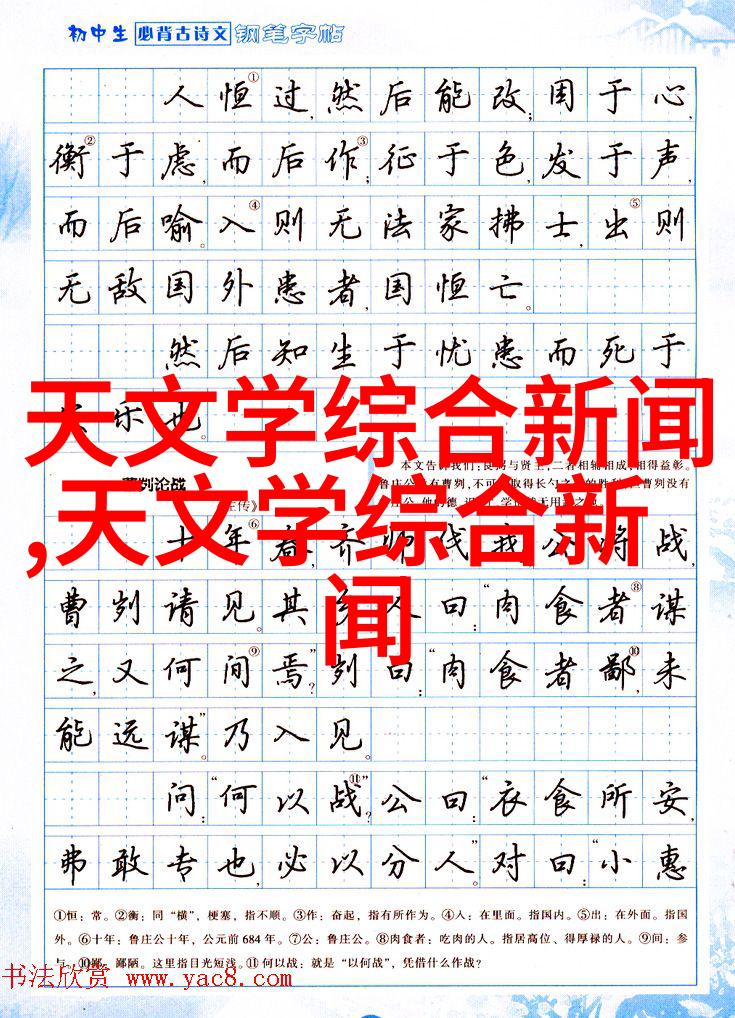 初中生 必背古诗文 钢笔字帖
人恒①过,然后能改;困于心,
衡②于虑,而后作③;征于色,发于声,
而后喻。入④则无法家拂士,出⑤则
无敌国外患者,国恒亡。
然后知生于忧患而死于
乐也。
天文学综合新闻
,天文学综合新
闻
曹刿论战
本文告诉我们:良将与贤主,二者相辅相成,相得益彰。
左传》
十年⑥春,齐师伐我,公⑦将战,
曹刿请见。其乡人曰:“肉食者⑧谋
之,又何间⑨焉?”刿曰:“肉食者鄙⑩,未
能远谋。”乃入见。
问:“何以战⑪?”公曰:“衣食所安,
弗敢专也,必以分人。”对曰:“小惠
①恒:常。②衡:同“横”,梗塞,指不顺。③作:奋起,指有所作为。④入:在里面。指国内。⑤出:在外面。指国
外。⑥十年:鲁庄公十年,公元前684年。⑦公:鲁庄公。⑧肉食者:吃肉的人。指居高位、得厚禄的人。⑨间:参
与。⑩鄙:鄙陋。这里指目光短浅。⑪何以战:就是“以何战”,凭借什么作战?
书法欣赏 www.yac8.com